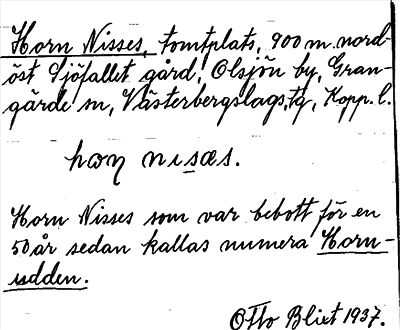 Horn Nisses, tomtplats, 900 m. nord-
öst Sjöfallet gård, Olsjön by, Gran-
gärde sn, Västerbergslags tg, Kopp. l.
hɷɳ nɩsæs.
Horn Nisses som var bebott för en
50 år sedan kallas numera Horn-
udden.
Otto Blixt 1937.